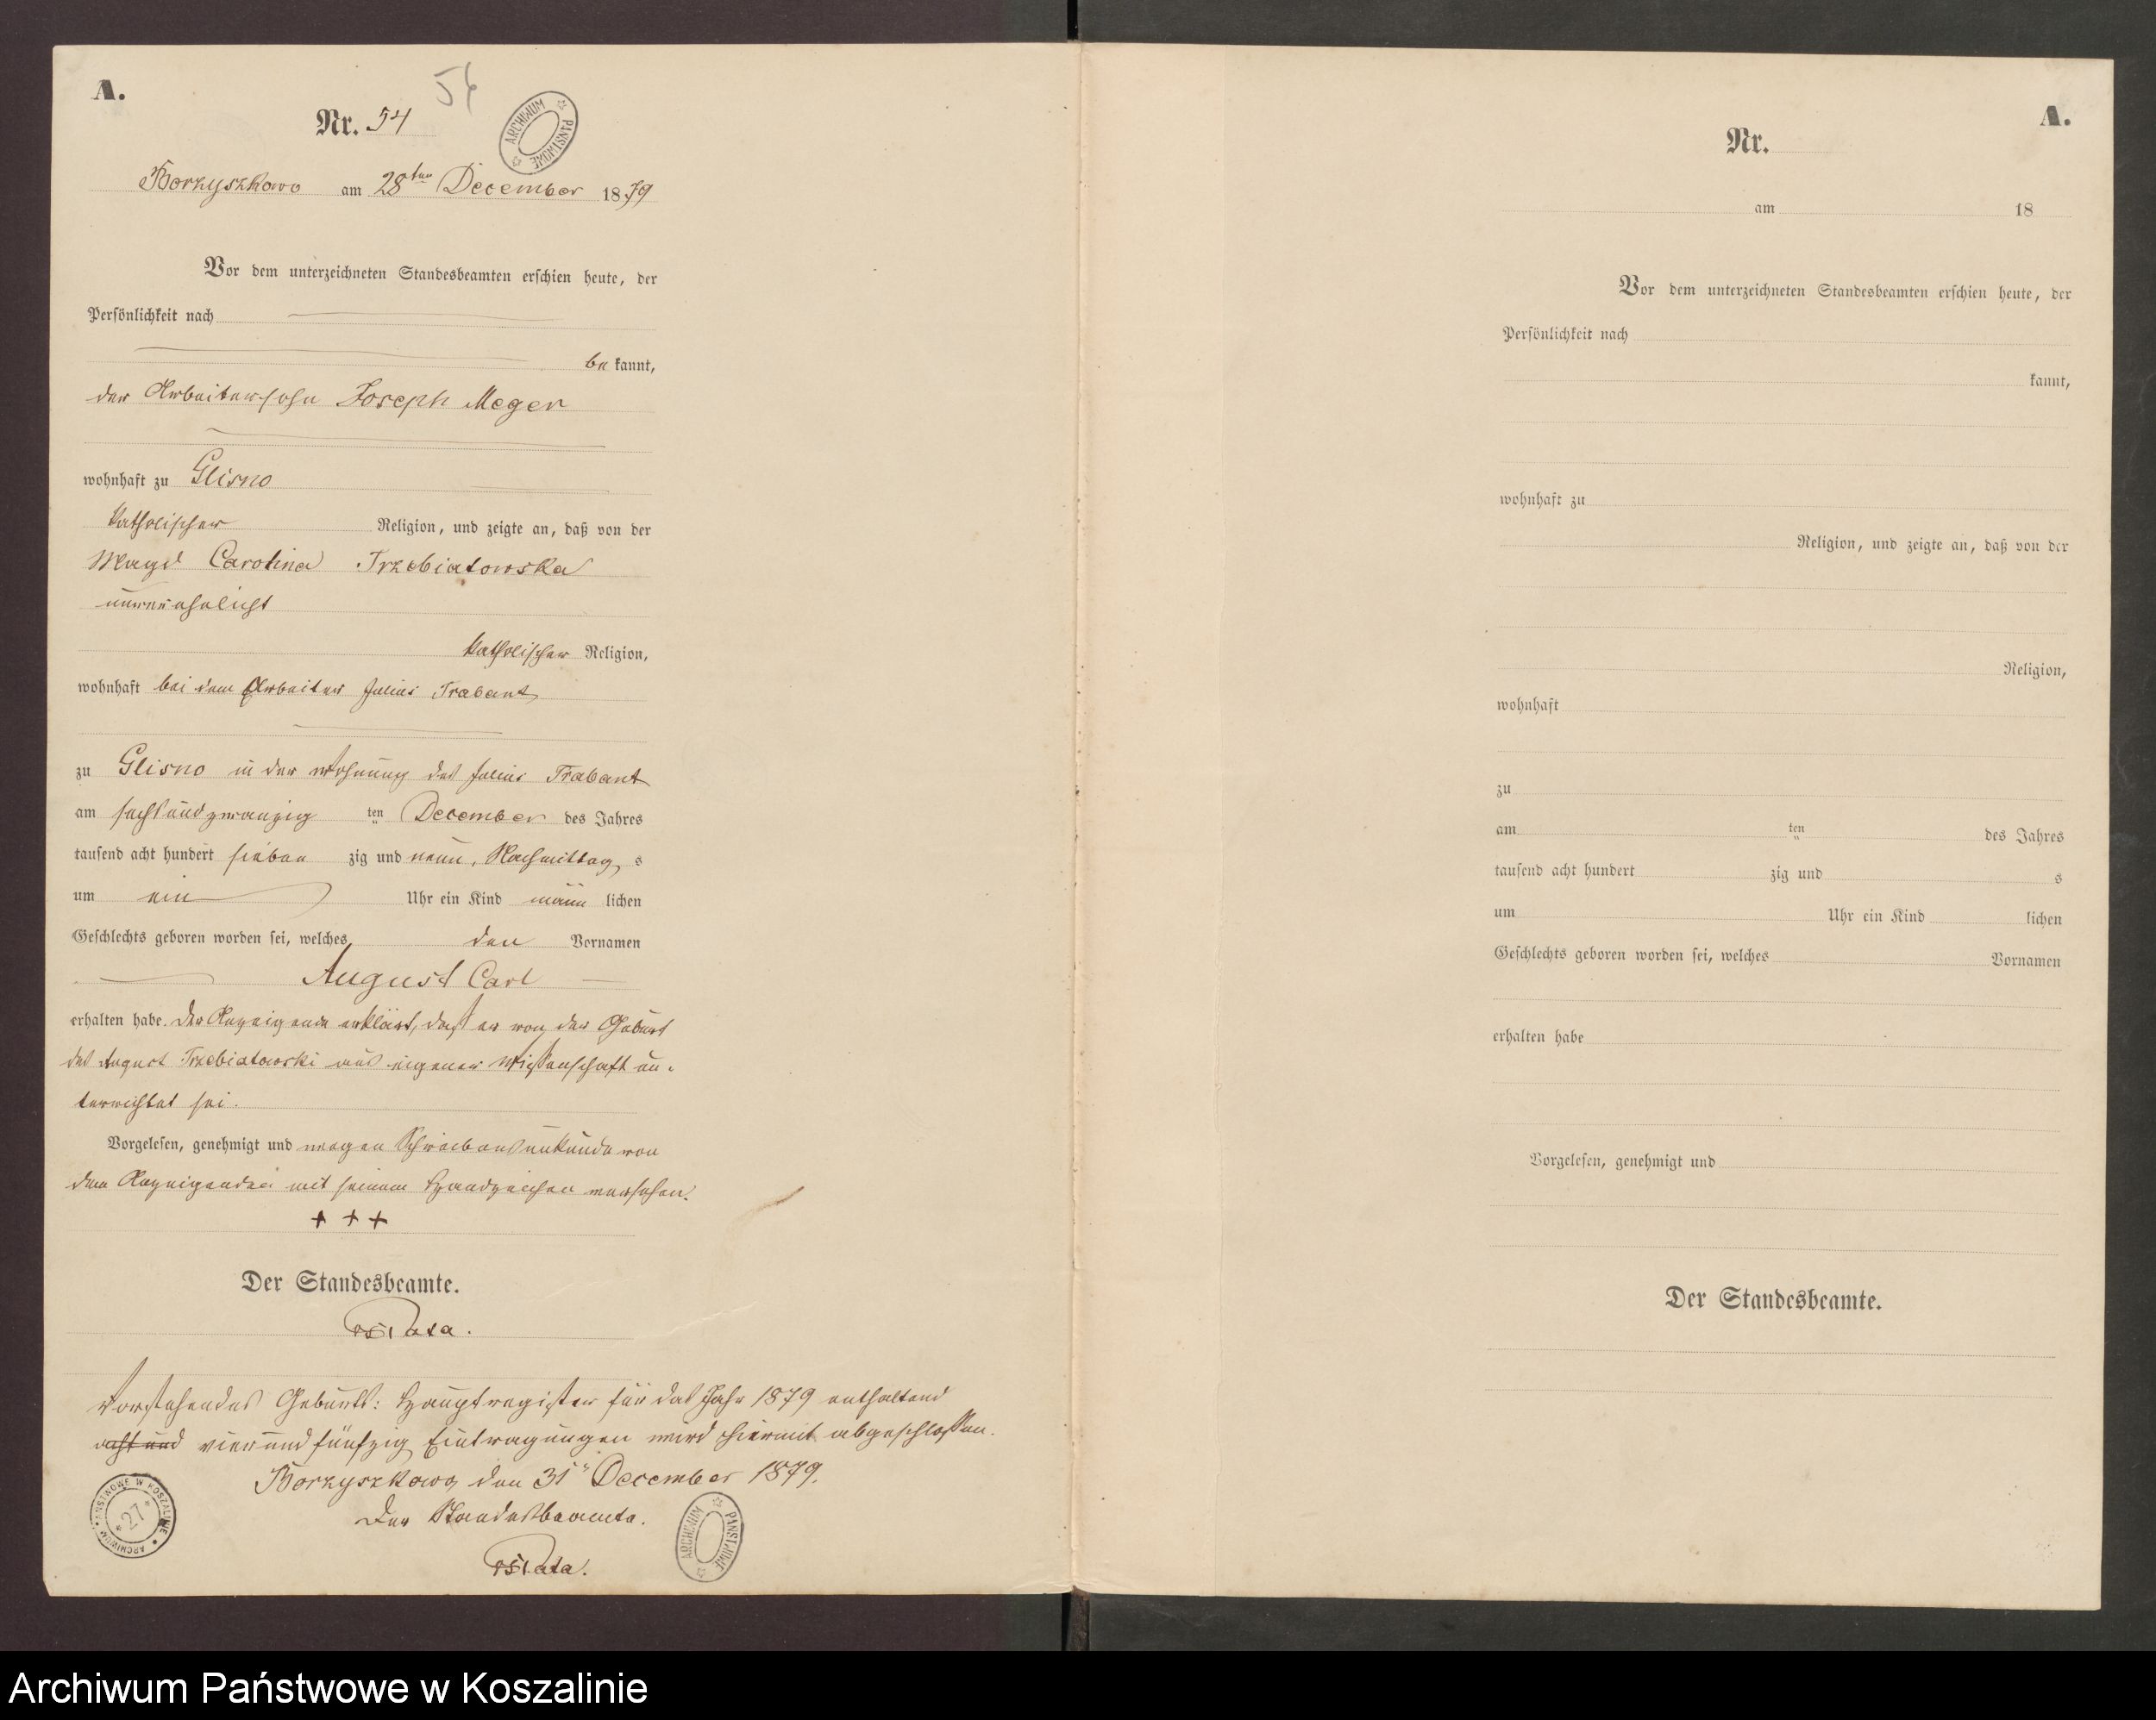 A.
54
Nr. 54
ARCHIWUM PAŃSTWOWE
Borzyszkowo am 28ten December 1879
Vor dem unterzeichneten Standesbeamten erschien heute, der
Persönlichkeit nach
be kannt,
der Arbeitersohn Joseph Meger
wohnhaft zu Glisno
katholischer Religion, und zeigte an, daß von der
Magd Carolina Trzebiatowska
unverehelicht
katholischer Religion,
wohnhaft bei dem Arbeiter Julius Trabant
zu Glisno in der Wohnung des Julius Trabant
am sechsundzwanzig ten December des Jahres
tausend acht hundert sieben zig und neun, Nachmittag s
um ein Uhr ein Kind männ lichen
Geschlechts geboren worden sei, welches den Vornamen
August Carl
erhalten habe. Der Anzeigende erklärt, daß er von der Geburt
des August Trzebiatowski aus eigener Wissenschaft un-
terrichtet sei.
Vorgelesen, genehmigt und wegen Schreibensunkunde von
dem Anzeigenden mit seinem Handzeichen versehen.
+ + +
Der Standesbeamte.
Vorstehendes Geburts: Hauptregister für das Jahr 1879 enthaltend
acht und vier und fünfzig Eintragungen wird hiermit abgeschlossen.
Borzyszkowo, den 31" December 1879.
Der Standesbeamte.
ARCHIWUM PAŃSTWOWE W KOSZALINIE * 27 *
ARCHIWUM PAŃSTWOWE
A.
Nr.
am 18
Vor dem unterzeichneten Standesbeamten erschien heute, der
Persönlichkeit nach
kannt,
wohnhaft zu
Religion, und zeigte an, daß von der
Religion,
wohnhaft
zu
am ten des Jahres
tausend acht hundert zig und s
um Uhr ein Kind lichen
Geschlechts geboren worden sei, welches Vornamen
erhalten habe
Vorgelesen, genehmigt und
Der Standesbeamte.
Archiwum Państwowe w Koszalinie